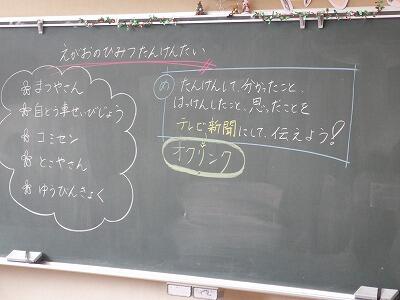 えがおのひみつたんけんたい
まつやさん
自どう車せいびじょう
コミセン
とこやさん
ゆうびんきょく
め たんけんして、分かったこと、
はっけんしたこと、思ったことを
テレビ新聞にして、伝えよう!
オクリンク